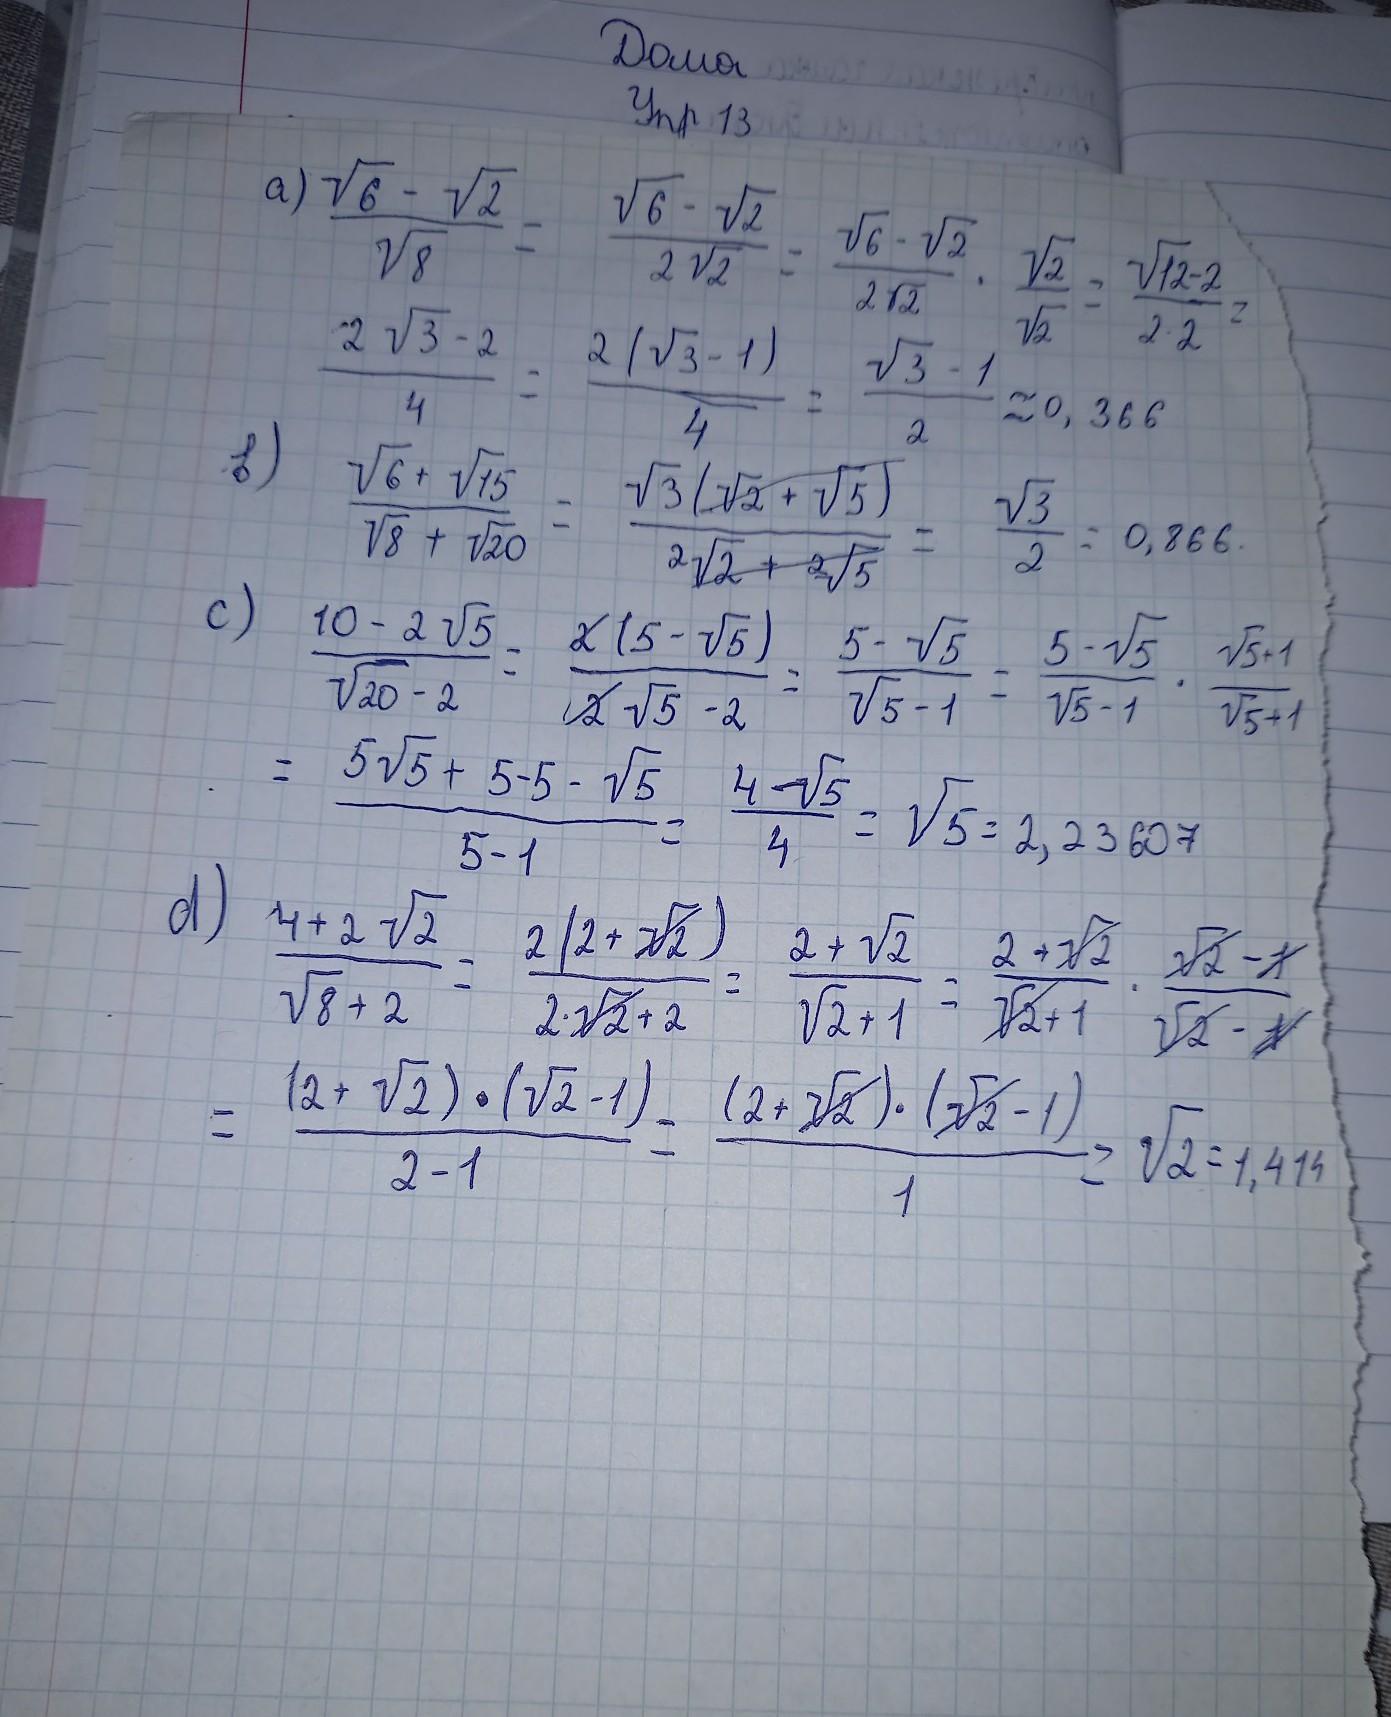 Дома
Упр 13
a) (√6 - √2)/√8 = (√6 - √2)/(2√2) = (√6 - √2)/(2√2) · √2/√2 = (√12 - 2)/(2·2) =
(2√3 - 2)/4 = 2(√3 - 1)/4 = (√3 - 1)/2 ≈ 0,366
b) (√6 + √15)/(√8 + √20) = √3(√2 + √5)/(2√2 + 2√5) = √3/2 = 0,866.
c) (10 - 2√5)/(√20 - 2) = 2(5 - √5)/(2√5 - 2) = (5 - √5)/(√5 - 1) = (5 - √5)/(√5 - 1) · (√5+1)/(√5+1)
= (5√5 + 5 - 5 - √5)/(5 - 1) = (4 - √5)/4 = √5 = 2,23607
d) (4 + 2√2)/(√8 + 2) = 2(2 + √2)/(2·√2 + 2) = (2 + √2)/(√2 + 1) = (2 + √2)/(√2 + 1) · (√2 - 1)/(√2 - 1)
= (2 + √2)·(√2 - 1)/(2 - 1) = (2 + √2)·(√2 - 1)/1 = √2 = 1,414